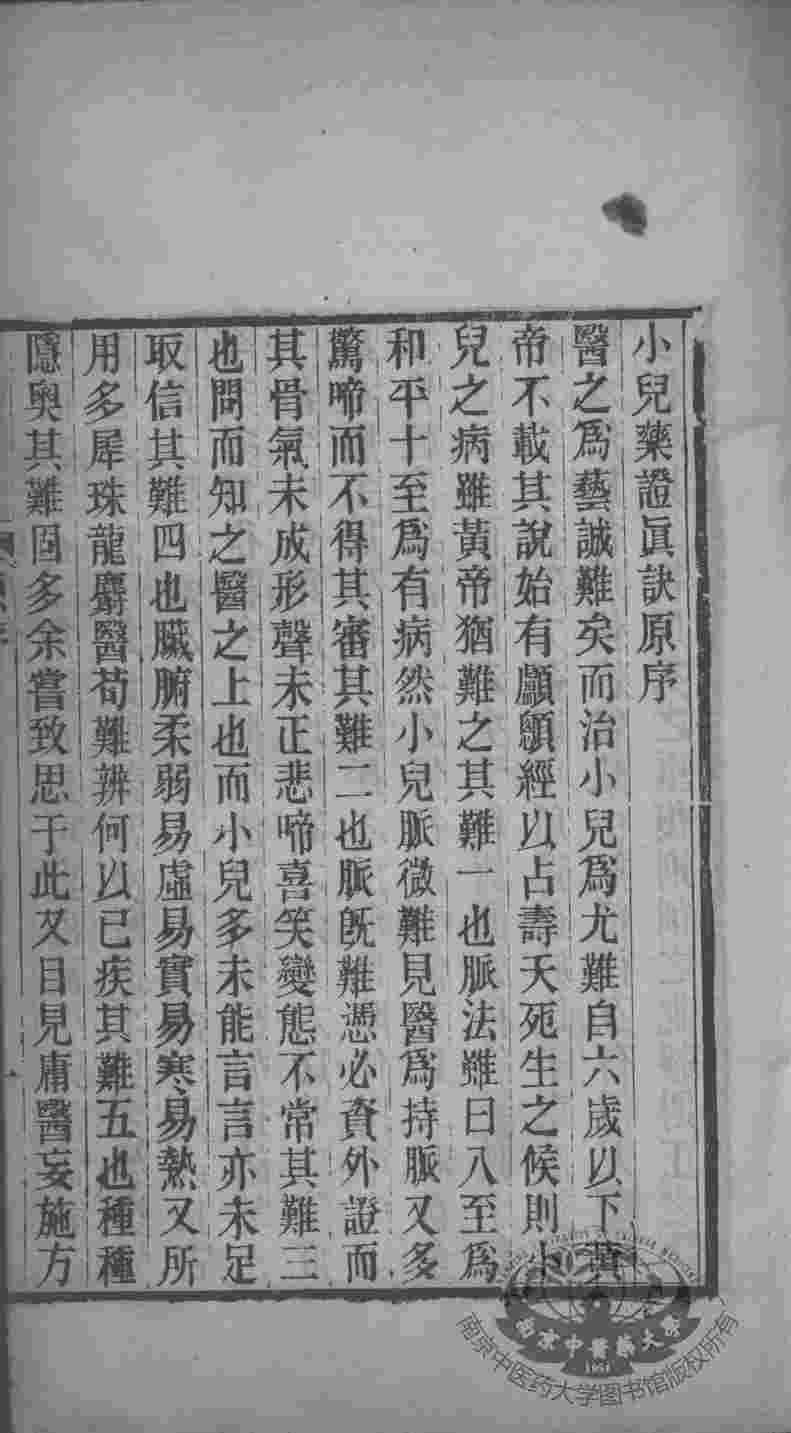 小兒藥證眞訣原序
醫之爲藝誠難矣而治小兒爲尤難自六歲以下黃
帝不載其說始有顱顖經以占壽夭死生之候則小
兒之病雖黃帝猶難之其難一也脈法雖曰八至爲
和平十至爲有病然小兒脈微難見醫爲持脈又多
驚啼而不得其審其難二也脈旣難憑必資外證而
其骨氣未成形聲未正悲啼喜笑變態不常其難三
也問而知之醫之上也而小兒多未能言言亦未足
取信其難四也臟腑柔弱易虛易實易寒易熱又所
用多犀珠龍麝醫苟難辨何以已疾其難五也種種
隱奧其難固多余嘗致思于此又目見庸醫妄施方
南京中醫藥大學
南京中医药大学图书馆版权所有